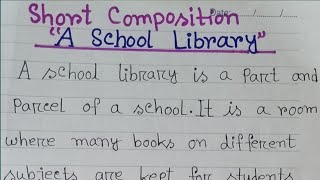 Short Composition
Date: / /
"A School Library"
A school library is a Part and
Parcel of a school. It is a room
where many books on different
subjects are kept for students